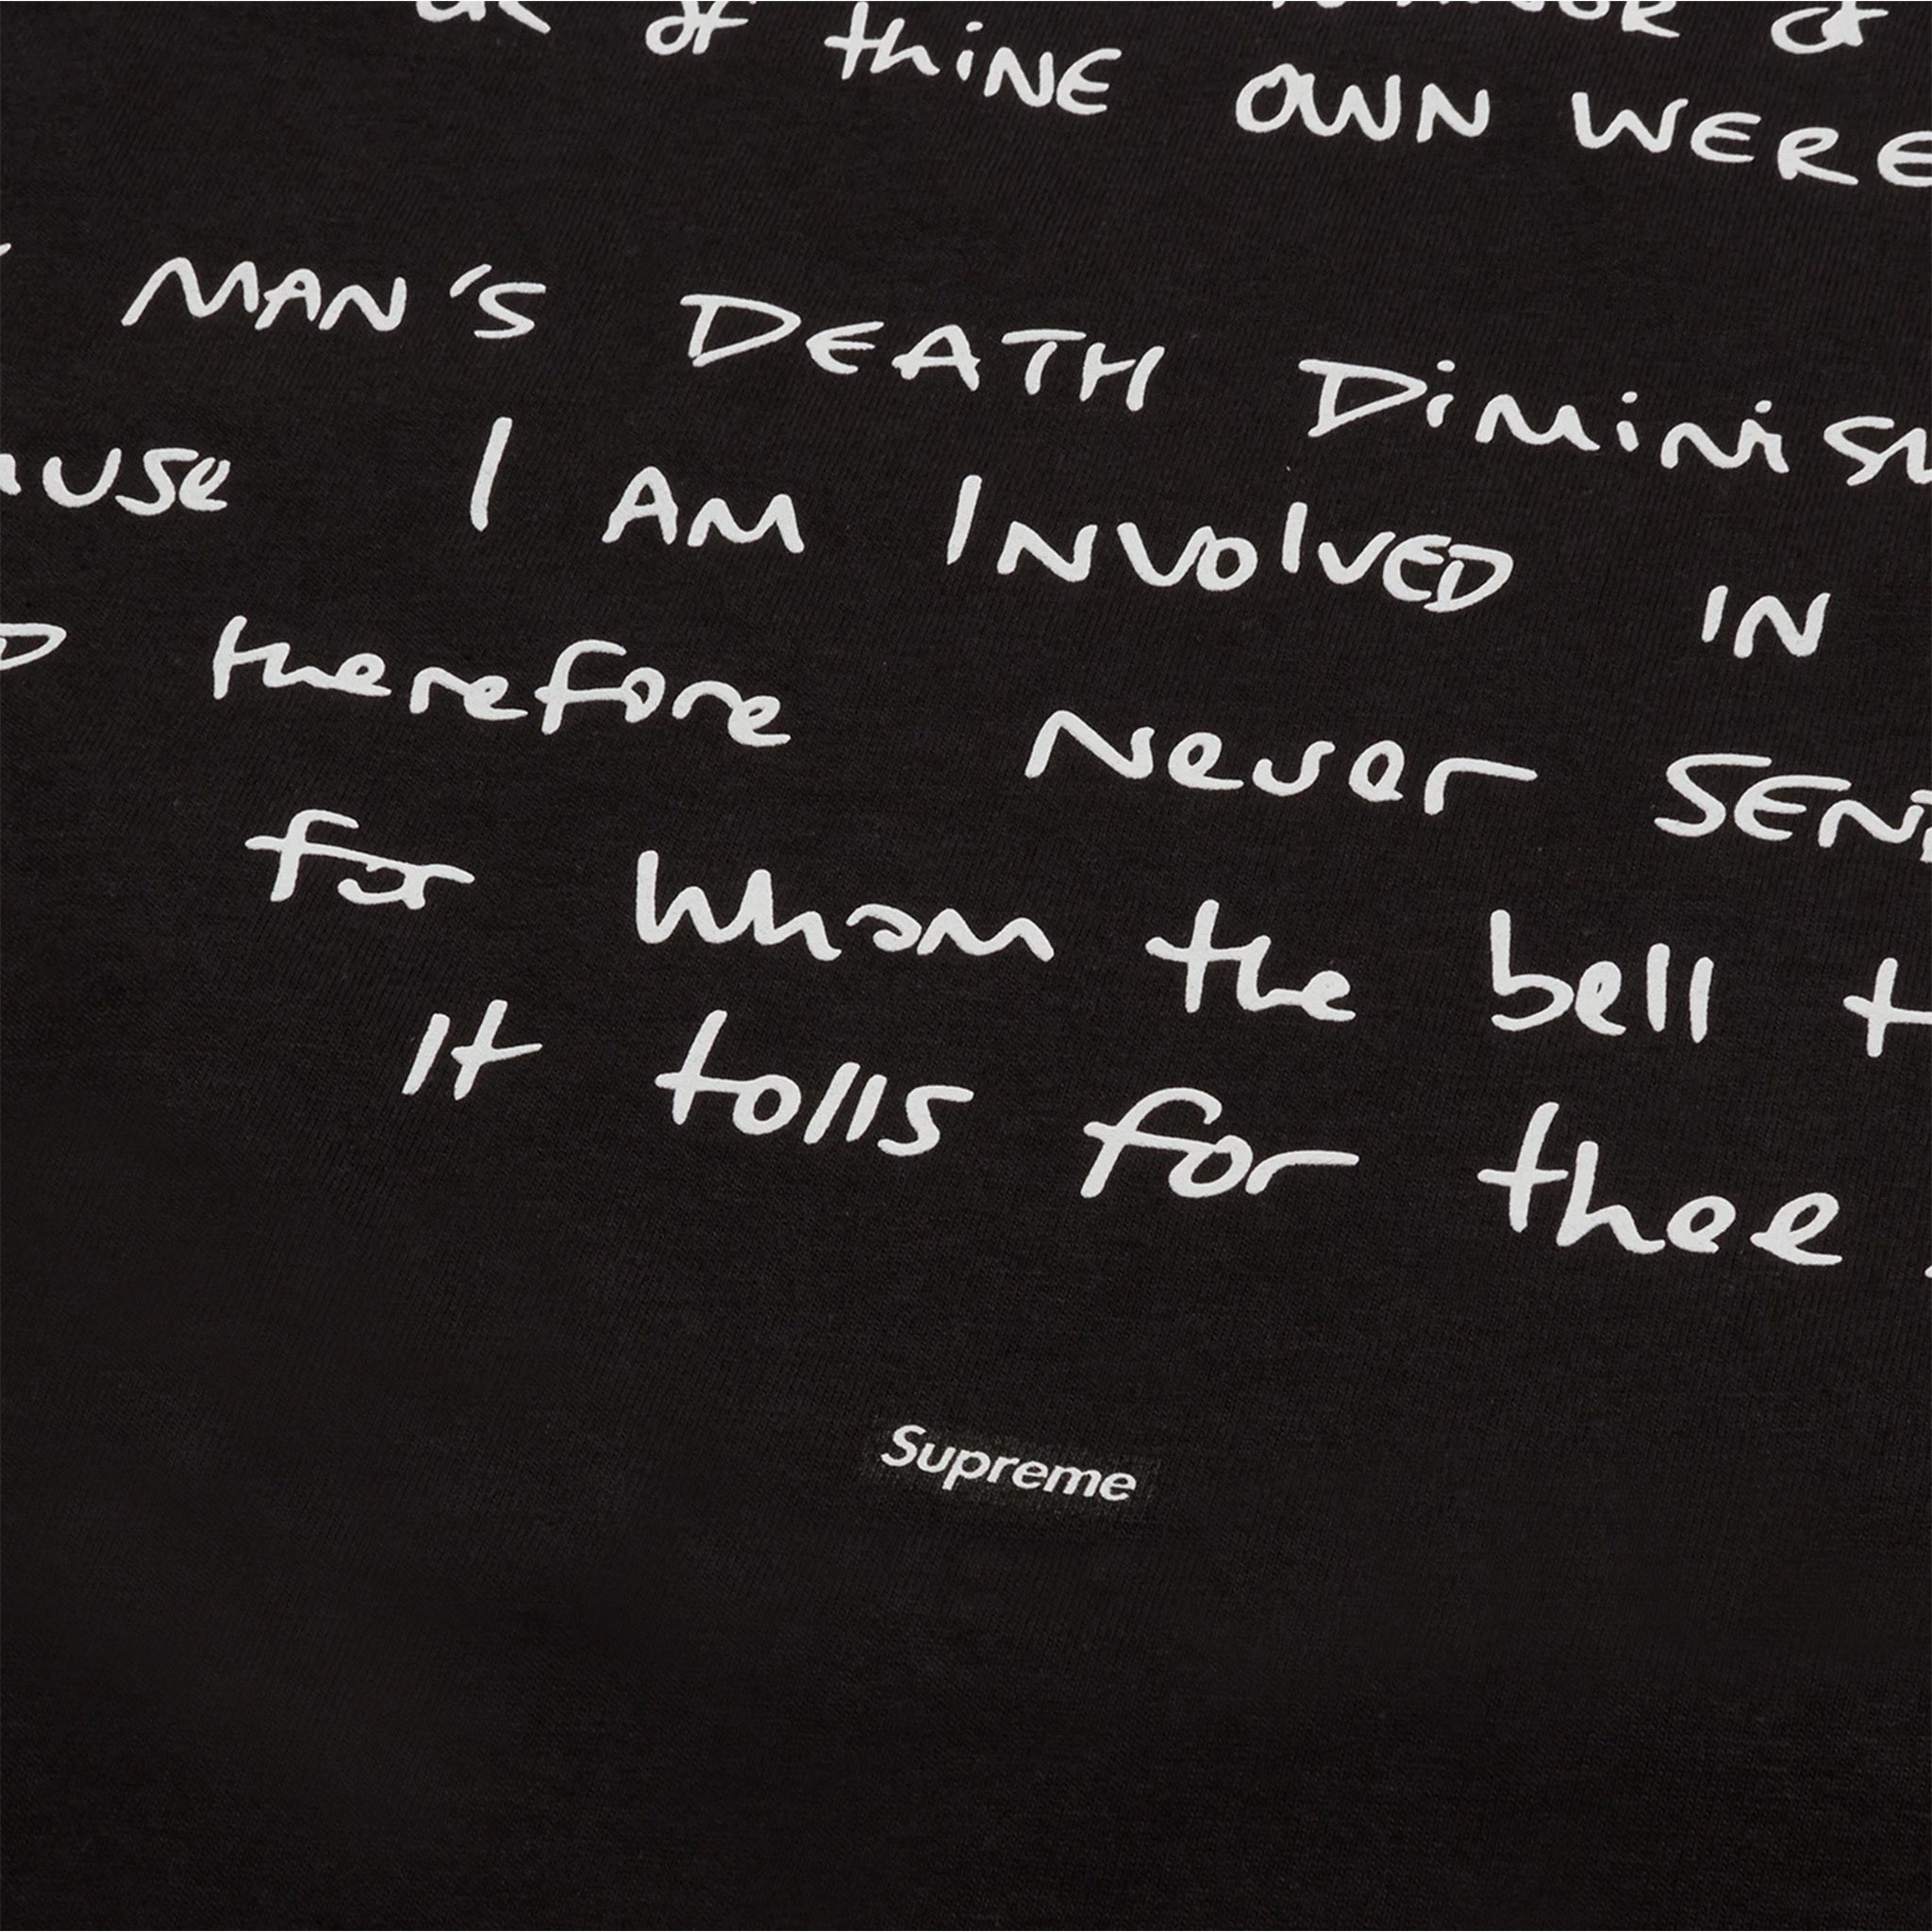 OF thiNE OWN WERE
MAN'S DEATH DiMiNiSH
I AM INVOlVED IN
therefore Never SEND
for Whom the bell
It tolls for thee
Supreme